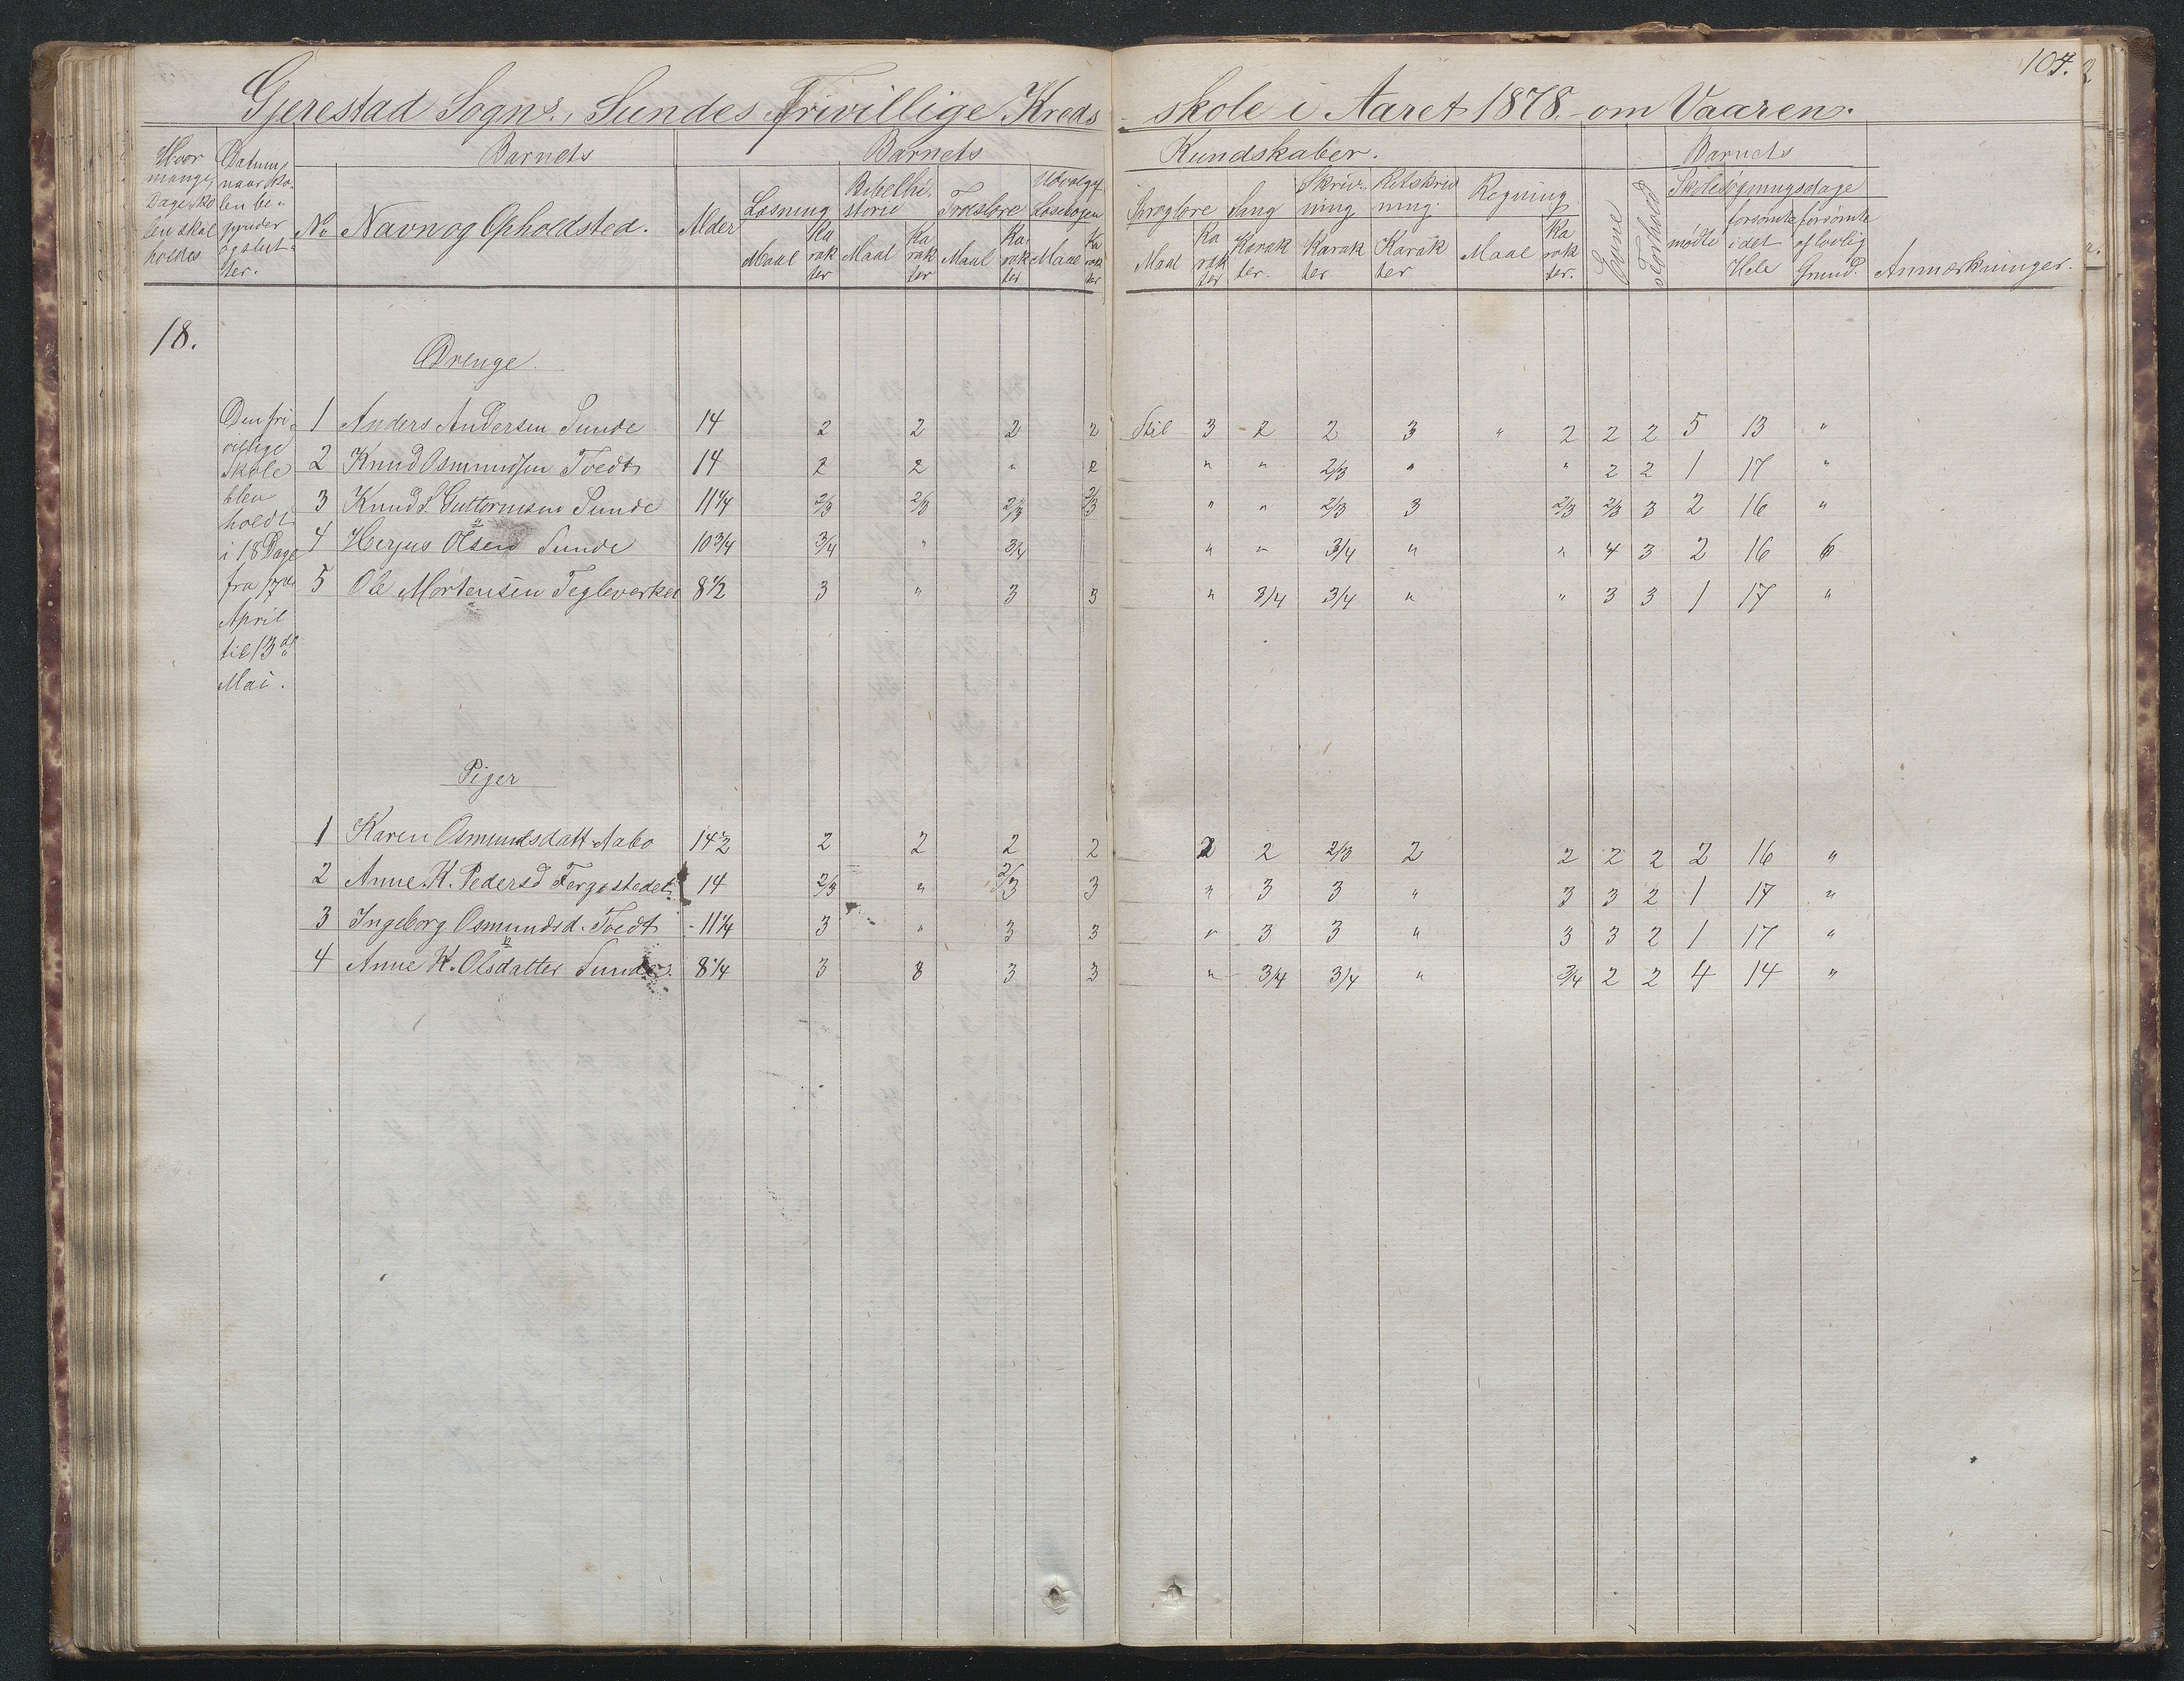 104.
Gjerestad Sogns, Sundes Frivillige Kreds - skole i Aaret 1878. om Vaaren.
Hvor mange Dage Skolen skal holdes
Datum, naar Skolen begynder og slutter.
Barnets
No Navn og Opholdsted. Alder
Barnets Kundskaber.
Læsning Maal Karakter
Bibelhistorie Maal Karakter
Troeslære Maal Karakter
Udvalgt Læsebogen Maal Karakter
Sproglære Maal Karakter
Sang Karakter.
Skrivning Karakter.
Retskrivning. Karakter
Regning Maal Karakter.
Evne
Forhold
Barnets Skolesøgningsdage
mødte
forsømte i det Hele
forsømte af lovlig Grund.
Anmærkninger.
18.
Drenge.
Den frivillige Skole blev holdt i 18 Dage fra April til 13de Mai.
1 Anders Andersen Sunde 14 2 2 2 2 Stil 3 2 2 3 " 2 2 2 5 13 "
2 Knud Osmundsen Tvedt 14 2 2 " 2 " " 2/3 " " 2 2 1 17 "
3 Knud S. Guttormsen Sunde 11 1/4 2/3 2/3 2/3 2/3 " " 2/3 3 2/3 2/3 3 2 16 "
4 Herjus Olsen Sunde 10 3/4 3/4 " 3/4 " " 3/4 " " 4 3 2 16 6
5 Ole Mortensen Tegleverket 8 1/2 3 " 3 3 " 3/4 3/4 " " 3 3 1 17 "
Piger
1 Karen Osmundsdatt. Aabo 14 1/2 2 2 2 2 2 2 2/3 2 2 2 2 2 16 "
2 Anne K. Pedersd 14 2/3 " 2/3 3 " 3 3 " 3 3 2 1 17 "
3 Ingeborg Osmundsd. Tvedt 11 1/4 3 " 3 3 " 3 3 " 3 3 2 1 17 "
4 Anne K. Olsdatter Sunde. 8 1/4 3 8 3 3 " 3/4 3/4 " 3/4 2 2 4 14 "